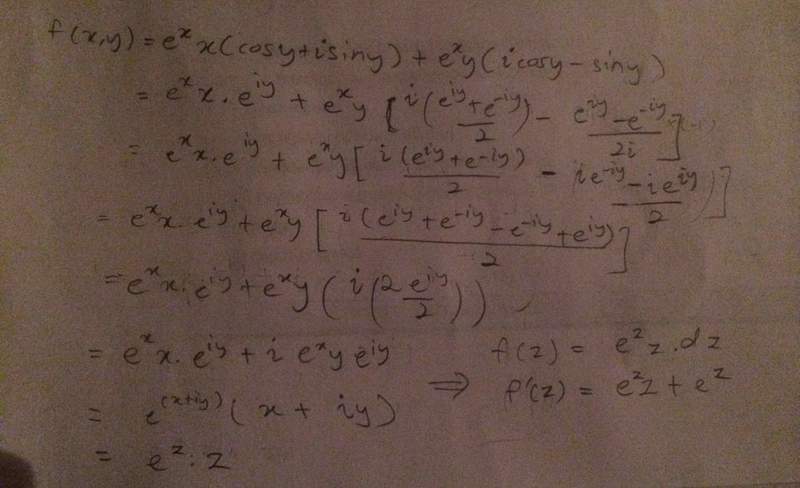 f(x,y) = e^x x(cosy+isiny) + e^x y(icosy − siny)
= e^x x · e^{iy} + e^x y [ i(e^{iy}+e^{-iy})/2 − (e^{iy}−e^{-iy})/2i ]
= e^x x · e^{iy} + e^x y [ i(e^{iy}+e^{-iy})/2 − (ie^{-iy}−ie^{iy})/2 ]
= e^x x · e^{iy} + e^x y [ i(e^{iy}+e^{-iy}−e^{-iy}+e^{iy})/2 ]
= e^x x · e^{iy} + e^x y ( i(2e^{iy}/2) )
= e^x x · e^{iy} + i e^x y e^{iy}
= e^{(x+iy)} (x + iy)
= e^z · z
f(z) = e^z z · dz
⇒ f'(z) = e^z z + e^z